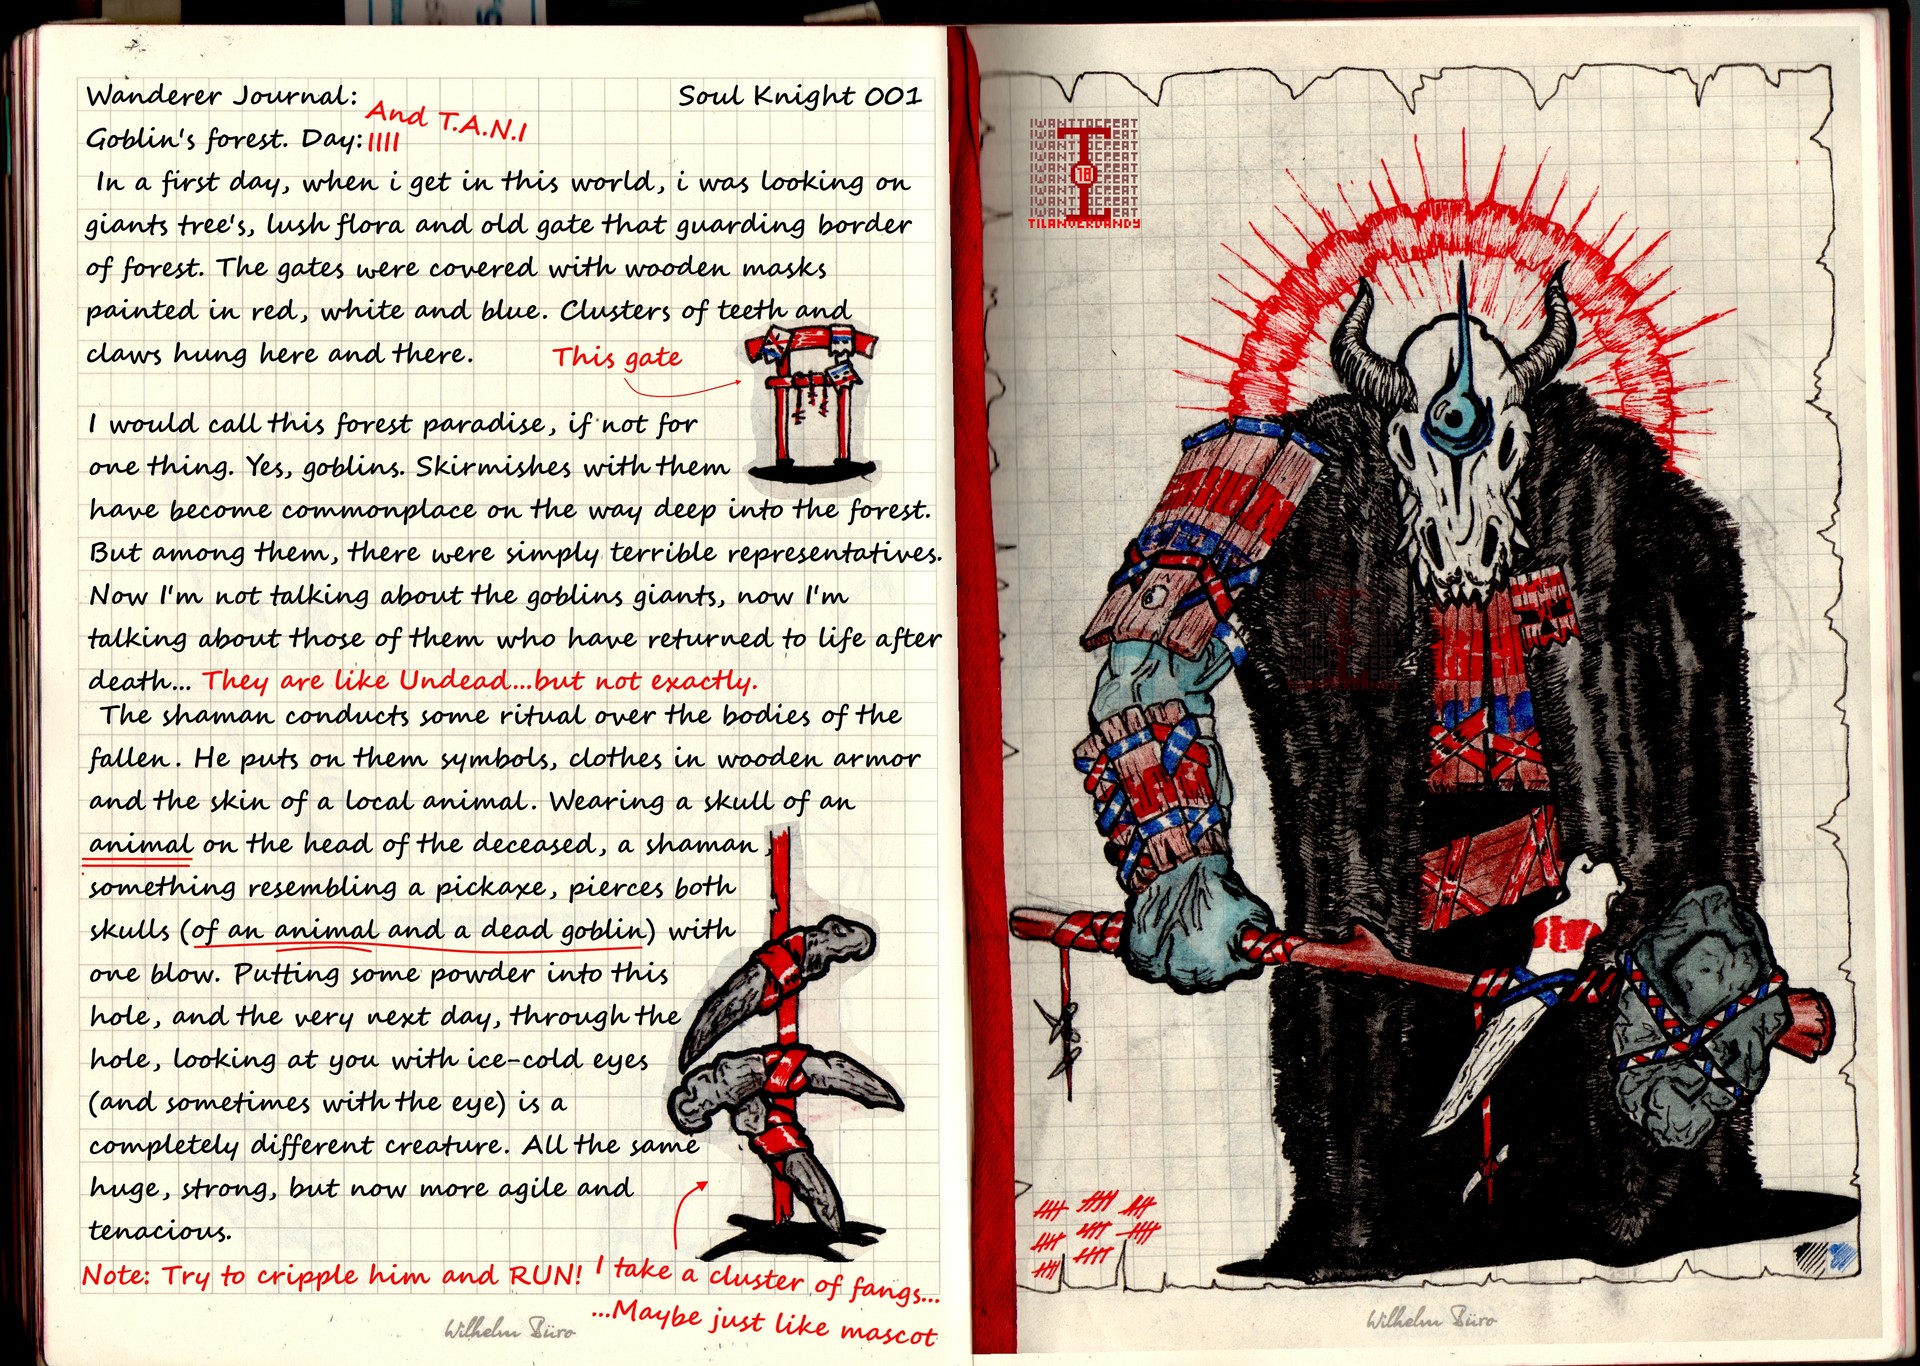 Wanderer Journal:
Soul Knight 001
And T.A.N.I
Goblin's forest. Day: IIII
In a first day, when i get in this world, i was looking on
giants tree's, lush flora and old gate that guarding border
of forest. The gates were covered with wooden masks
painted in red, white and blue. Clusters of teeth and
claws hung here and there.
This gate
I would call this forest paradise, if not for
one thing. Yes, goblins. Skirmishes with them
have become commonplace on the way deep into the forest.
But among them, there were simply terrible representatives.
Now I'm not talking about the goblins giants, now I'm
talking about those of them who have returned to life after
death... They are like Undead...but not exactly.
The shaman conducts some ritual over the bodies of the
fallen. He puts on them symbols, clothes in wooden armor
and the skin of a local animal. Wearing a skull of an
animal on the head of the deceased, a shaman,
something resembling a pickaxe, pierces both
skulls (of an animal and a dead goblin) with
one blow. Putting some powder into this
hole, and the very next day, through the
hole, looking at you with ice-cold eyes
(and sometimes with the eye) is a
completely different creature. All the same
huge, strong, but now more agile and
tenacious.
Note: Try to cripple him and RUN!
I take a cluster of fangs...
...Maybe just like mascot
Wilhelm Büro
IWANTTOCREAT
IWA EAT
IWAN CREAT
IWANT CREAT
18
IWANT CREAT
IWANT CREAT
IWANT CREAT
IWA EAT
TILANVERDANDY
Wilhelm Büro